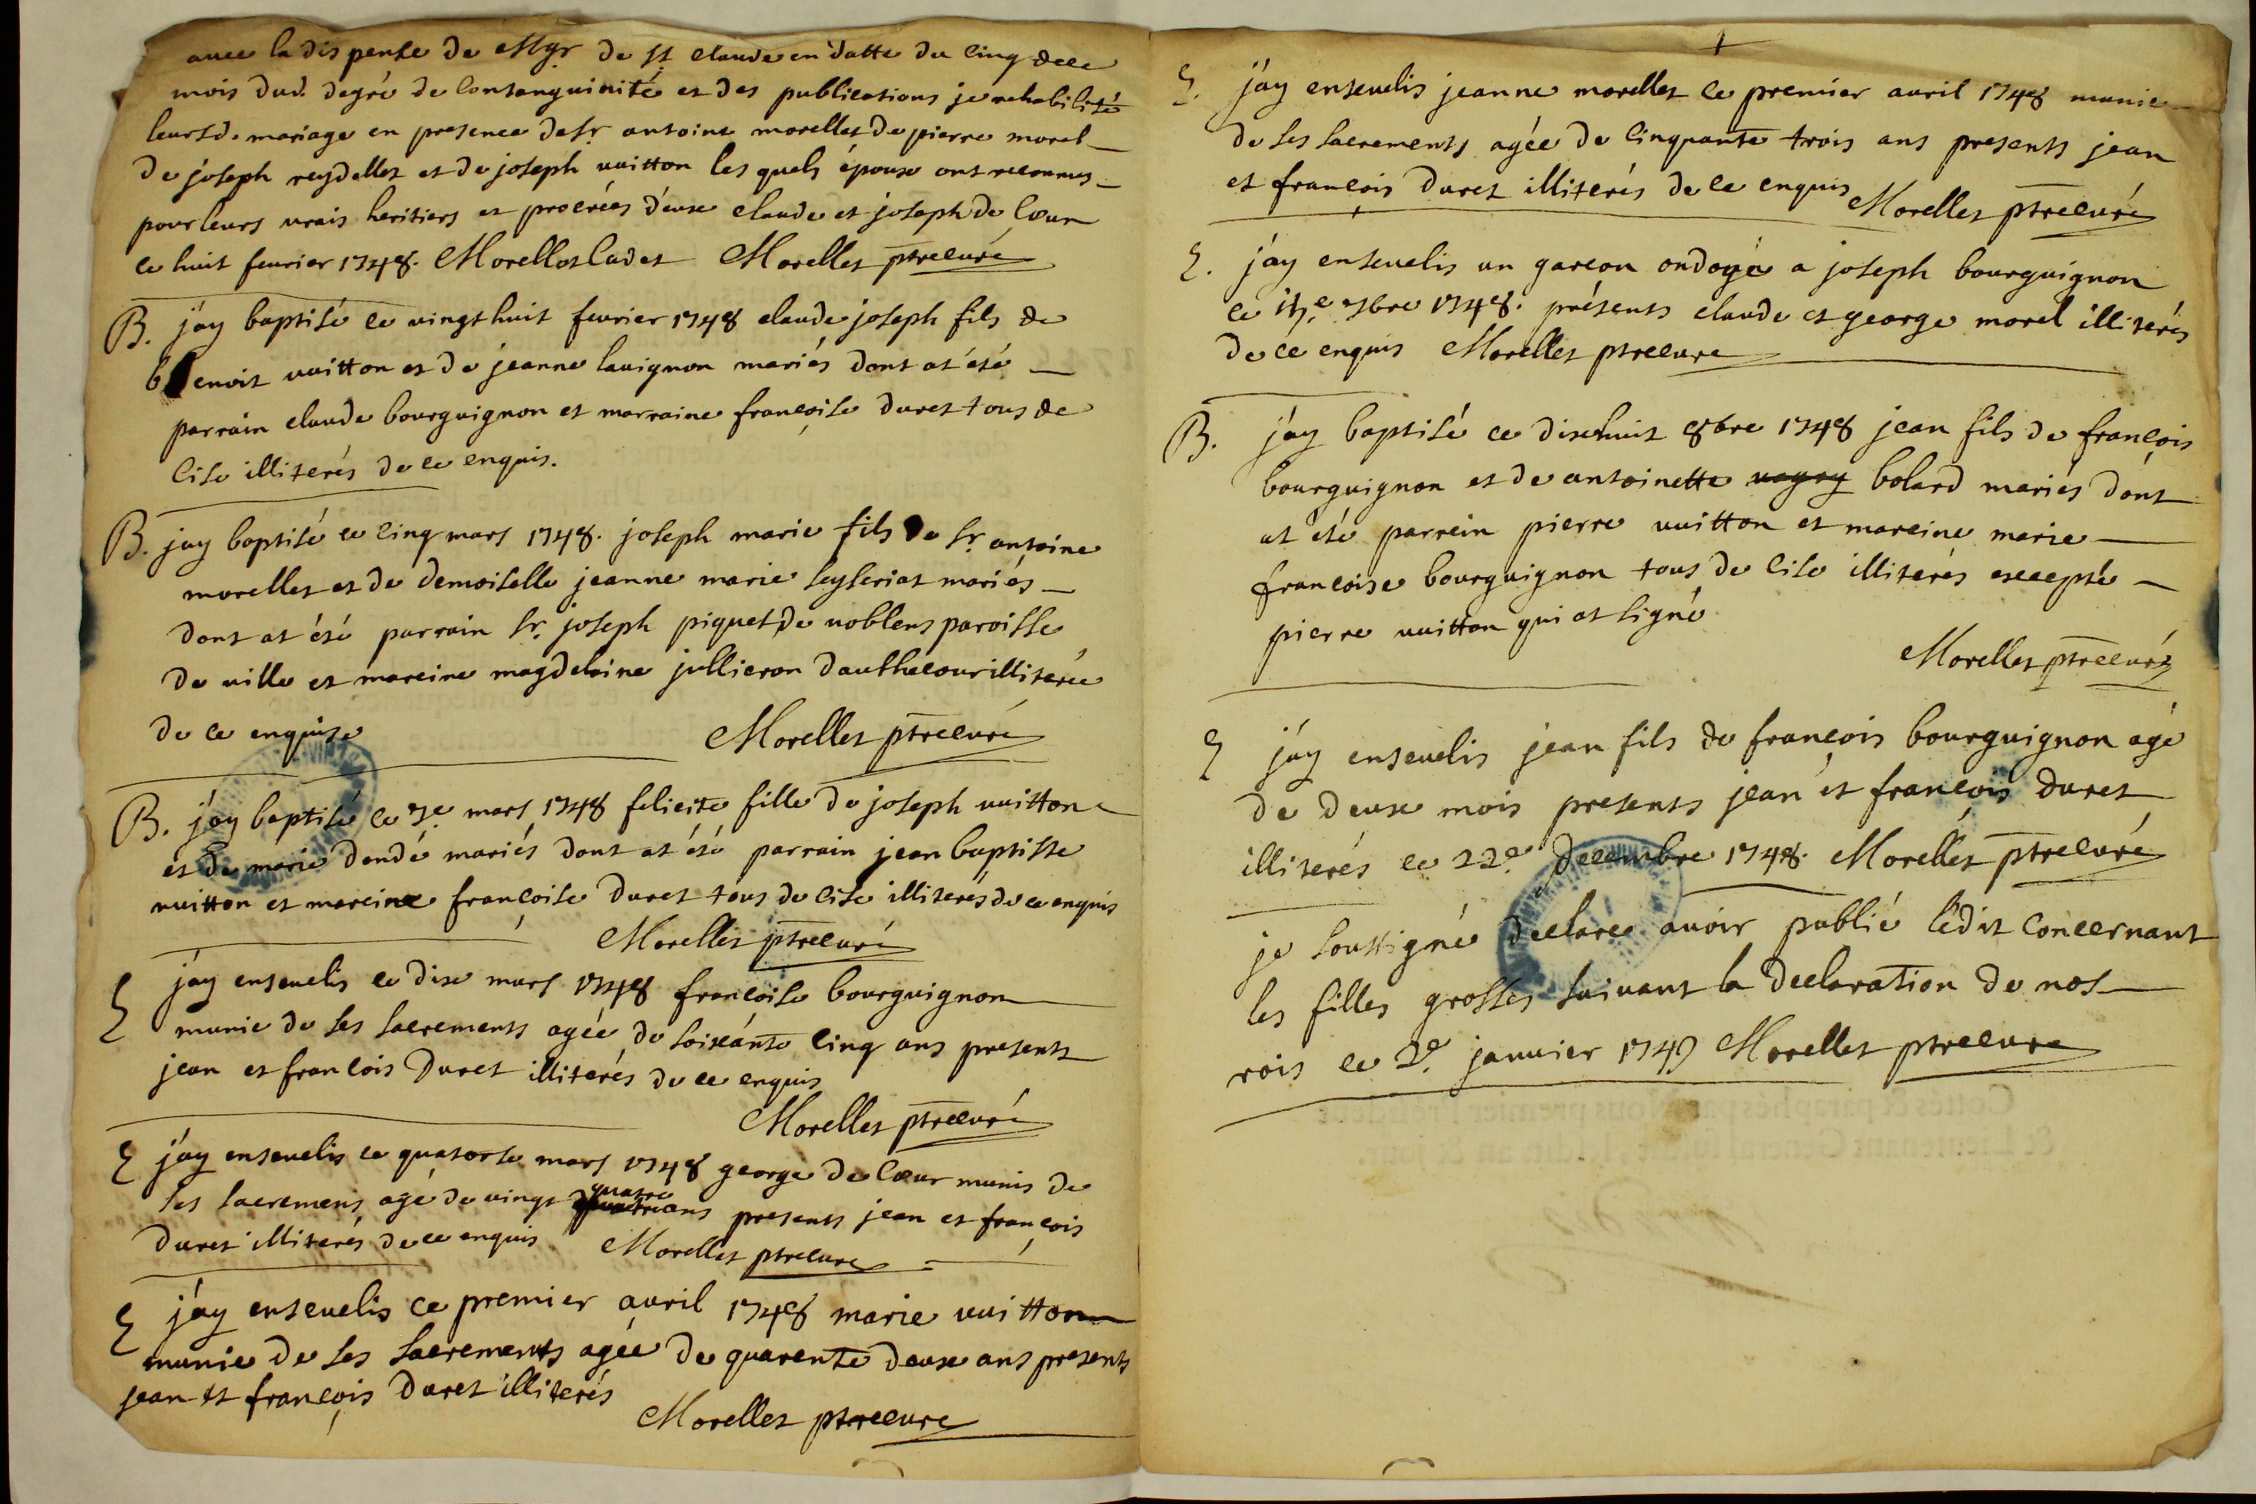 avec la dispense de Mgr de St claude en datte du cinq de ce
mois dud. degré de consanguinité et des publications je rehabilité
leursd. mariage en presence de Sr antoine morellet de pierre morel
de joseph reydellet et de joseph vuitton les quels époux ont reconnus
pour leurs vrais heritiers et procrées d'eux claude et joseph de Cœur
ce huit fevrier 1748. Morellet Cadet Morellet ptre curé
B. j'ay baptisé ce vingt huit fevrier 1748 claude joseph fils de
benoit vuitton et de jeanne lavignon mariés dont at été
parrain claude bourguignon et marraine françoise duret tous de
Cise illiterés de ce enquis.
B. jay baptisé ce cinq mars 1748. joseph marie fils de Sr antoine
morellet et de demoiselle jeanne marie seyseriat mariés
dont at été parrain Sr joseph piquet de noblens paroisse
de ville et mareine magdeleine jullieron d'authecour illiterée
de ce enquise
Morellet ptre curé
B. j'ay baptisé ce 7e mars 1748 felicite fille de joseph vuitton
et de marie dondé mariés dont at été parrain jean baptiste
vuitton et mareine françoise duret tous de Cise illiterés de ce enquis
Morellet ptre curé
E j'ay ensevelis ce dix mars 1748 françoise bourguignon
munie de ses sacrements agée de soixánte cinq ans presents
jean et francois Duret illiterés de ce enquis
Morellet ptre curé
E j'ay ensevelis ce quatorse mars 1748 george de Cœur munis de
ses sacremens agé de vingt quatre ans presents jean et françois
Duret illiterés de ce enquis Morellet ptre cure
E j'ay ensevelis ce premier avril 1748 marie vuitton
munie de ses sacrements agée de quarente deux ans presents
jean et françois Duret illiterés
Morellet ptre cure
E. j'ay ensevelis jeanne morellet ce premier avril 1748 munie
de ses sacrements agée de cinquante trois ans presents jean
et françois duret illiterés de ce enquis Morellet ptre curé
E. j'ay ensevelis un garcon ondoyé a joseph bourguignon
ce 7bre 1748. présents claude et george morel illiterés
de ce enquis Morellet ptre cure
B. j'ay baptisé ce dixhuit 8bre 1748 jean fils de françois
bourguignon et de antoinette bolard mariés dont
at été parrein pierre vuitton et mareine marie
francoise bourguignon tous de Cise illiterés excepté
pierre vuitton qui at signé
Morellet ptre curé
E j'ay ensevelis jean fils de françois bourguignon agé
de deux mois presents jean et françois duret
illiterés ce 22e decembre 1748. Morellet ptre curé
je soussigné declare avoir publié l'edit concernant
les filles grosses suivant la declaration de nos
rois ce 2e janvier 1749 Morellet ptre cure